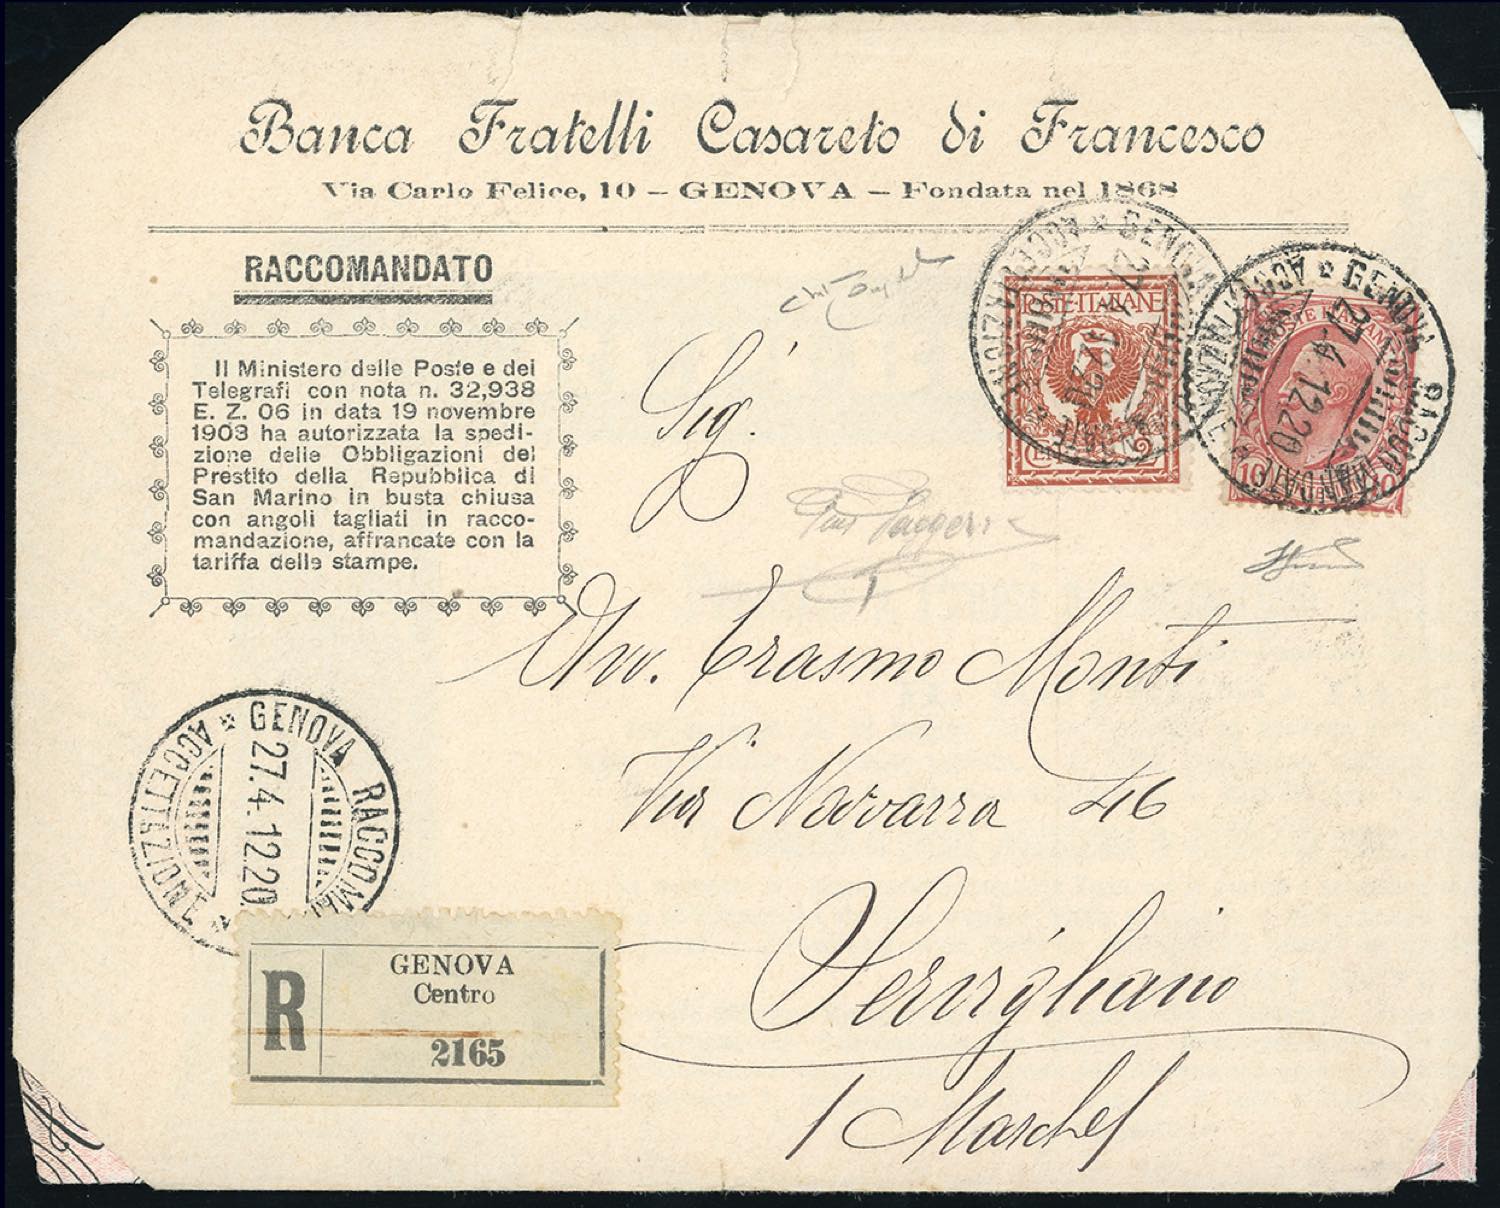 Banca Fratelli Casareto di Francesco
Via Carlo Felice, 10 – GENOVA – Fondata nel 1868
RACCOMANDATO
Il Ministero delle Poste e dei
Telegrafi con nota n. 32,938
E. Z. 06 in data 19 novembre
1903 ha autorizzata la spedi-
zione delle Obbligazioni del
Prestito della Repubblica di
San Marino in busta chiusa
con angoli tagliati in racco-
mandazione, affrancate con la
tariffa delle stampe.
GENOVA RACCOMANDATE ACCETTAZIONE
27.4.12.20
POSTE ITALIANE
2
GENOVA RACCOMANDATE ACCETTAZIONE
27.4.12.20
POSTE ITALIANE
10 10
Sig.
Avv. Erasmo Monti
Via Navarra 46
Servigliano
Marche
GENOVA RACCOM ACCETTAZIONE
27.4.12.20
R
GENOVA
Centro
2165